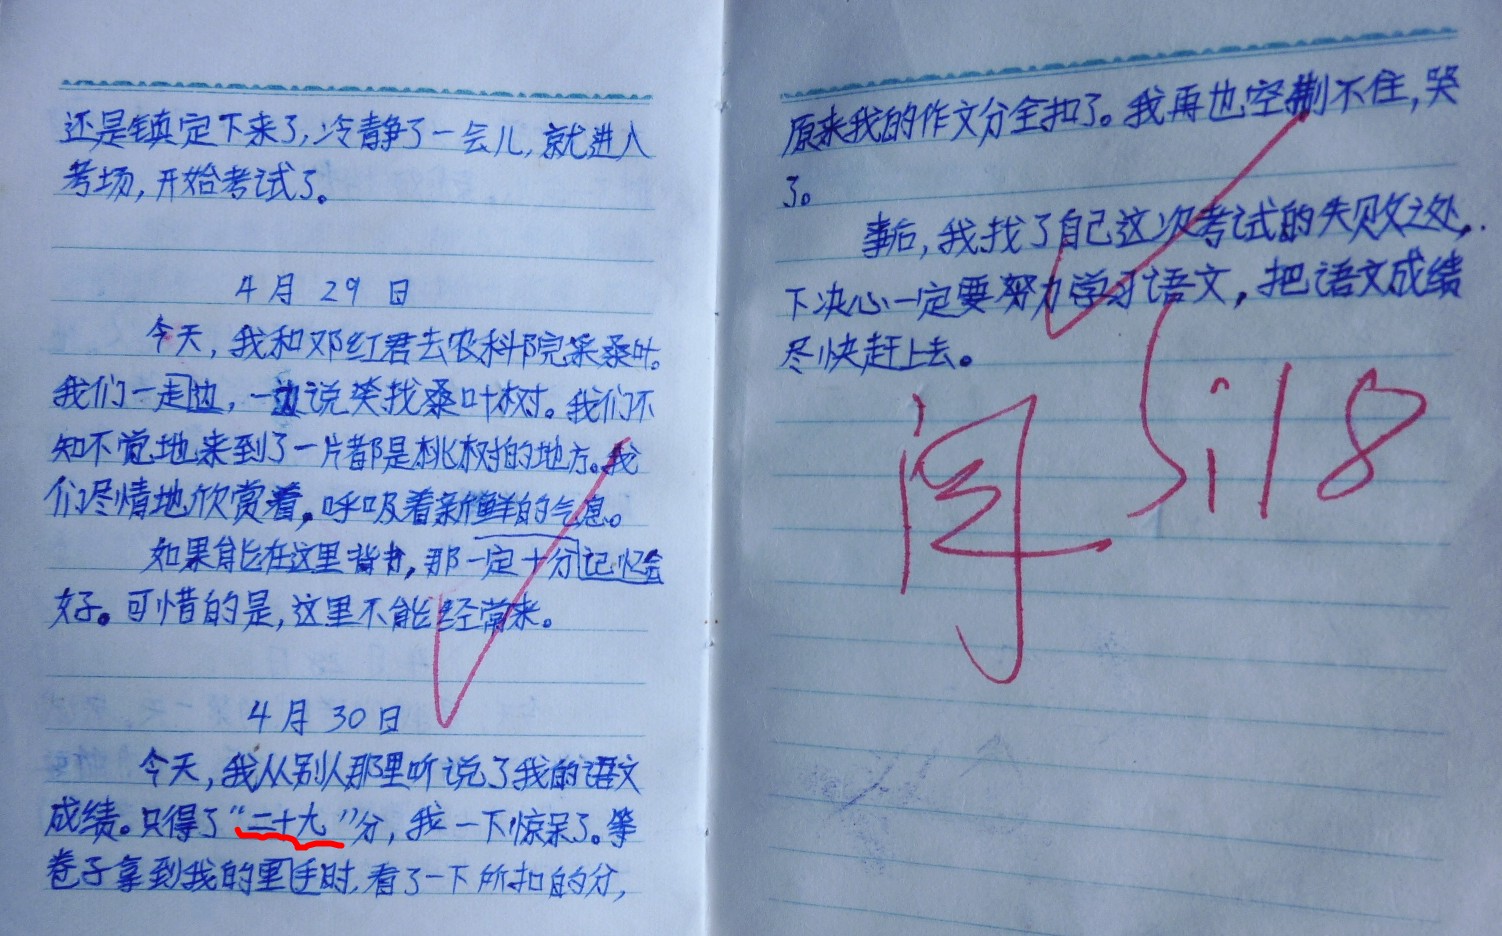 还是镇定下来了,冷静了一会儿,就进入
考场,开始考试了。
4月29日
今天,我和邓红君去农科院采桑叶。
我们一走边,一边说笑找桑叶树。我们不
知不觉地来到了一片都是桃树的地方。我
们尽情地欣赏着,呼吸着新鲜的气息。
如果能在这里背书,那一定十分记忆会
好。可惜的是,这里不能经常来。
4月30日
今天,我从别人那里听说了我的语文
成绩。只得了“二十九”分,我一下惊呆了。等
卷子拿到我的里手时,看了一下所扣的分,
原来我的作文分全扣了。我再也控制不住,哭
了。
事后,我找了自己这次考试的失败之处,
下决心一定要努力学习语文,把语文成绩
尽快赶上去。
阅 5.18